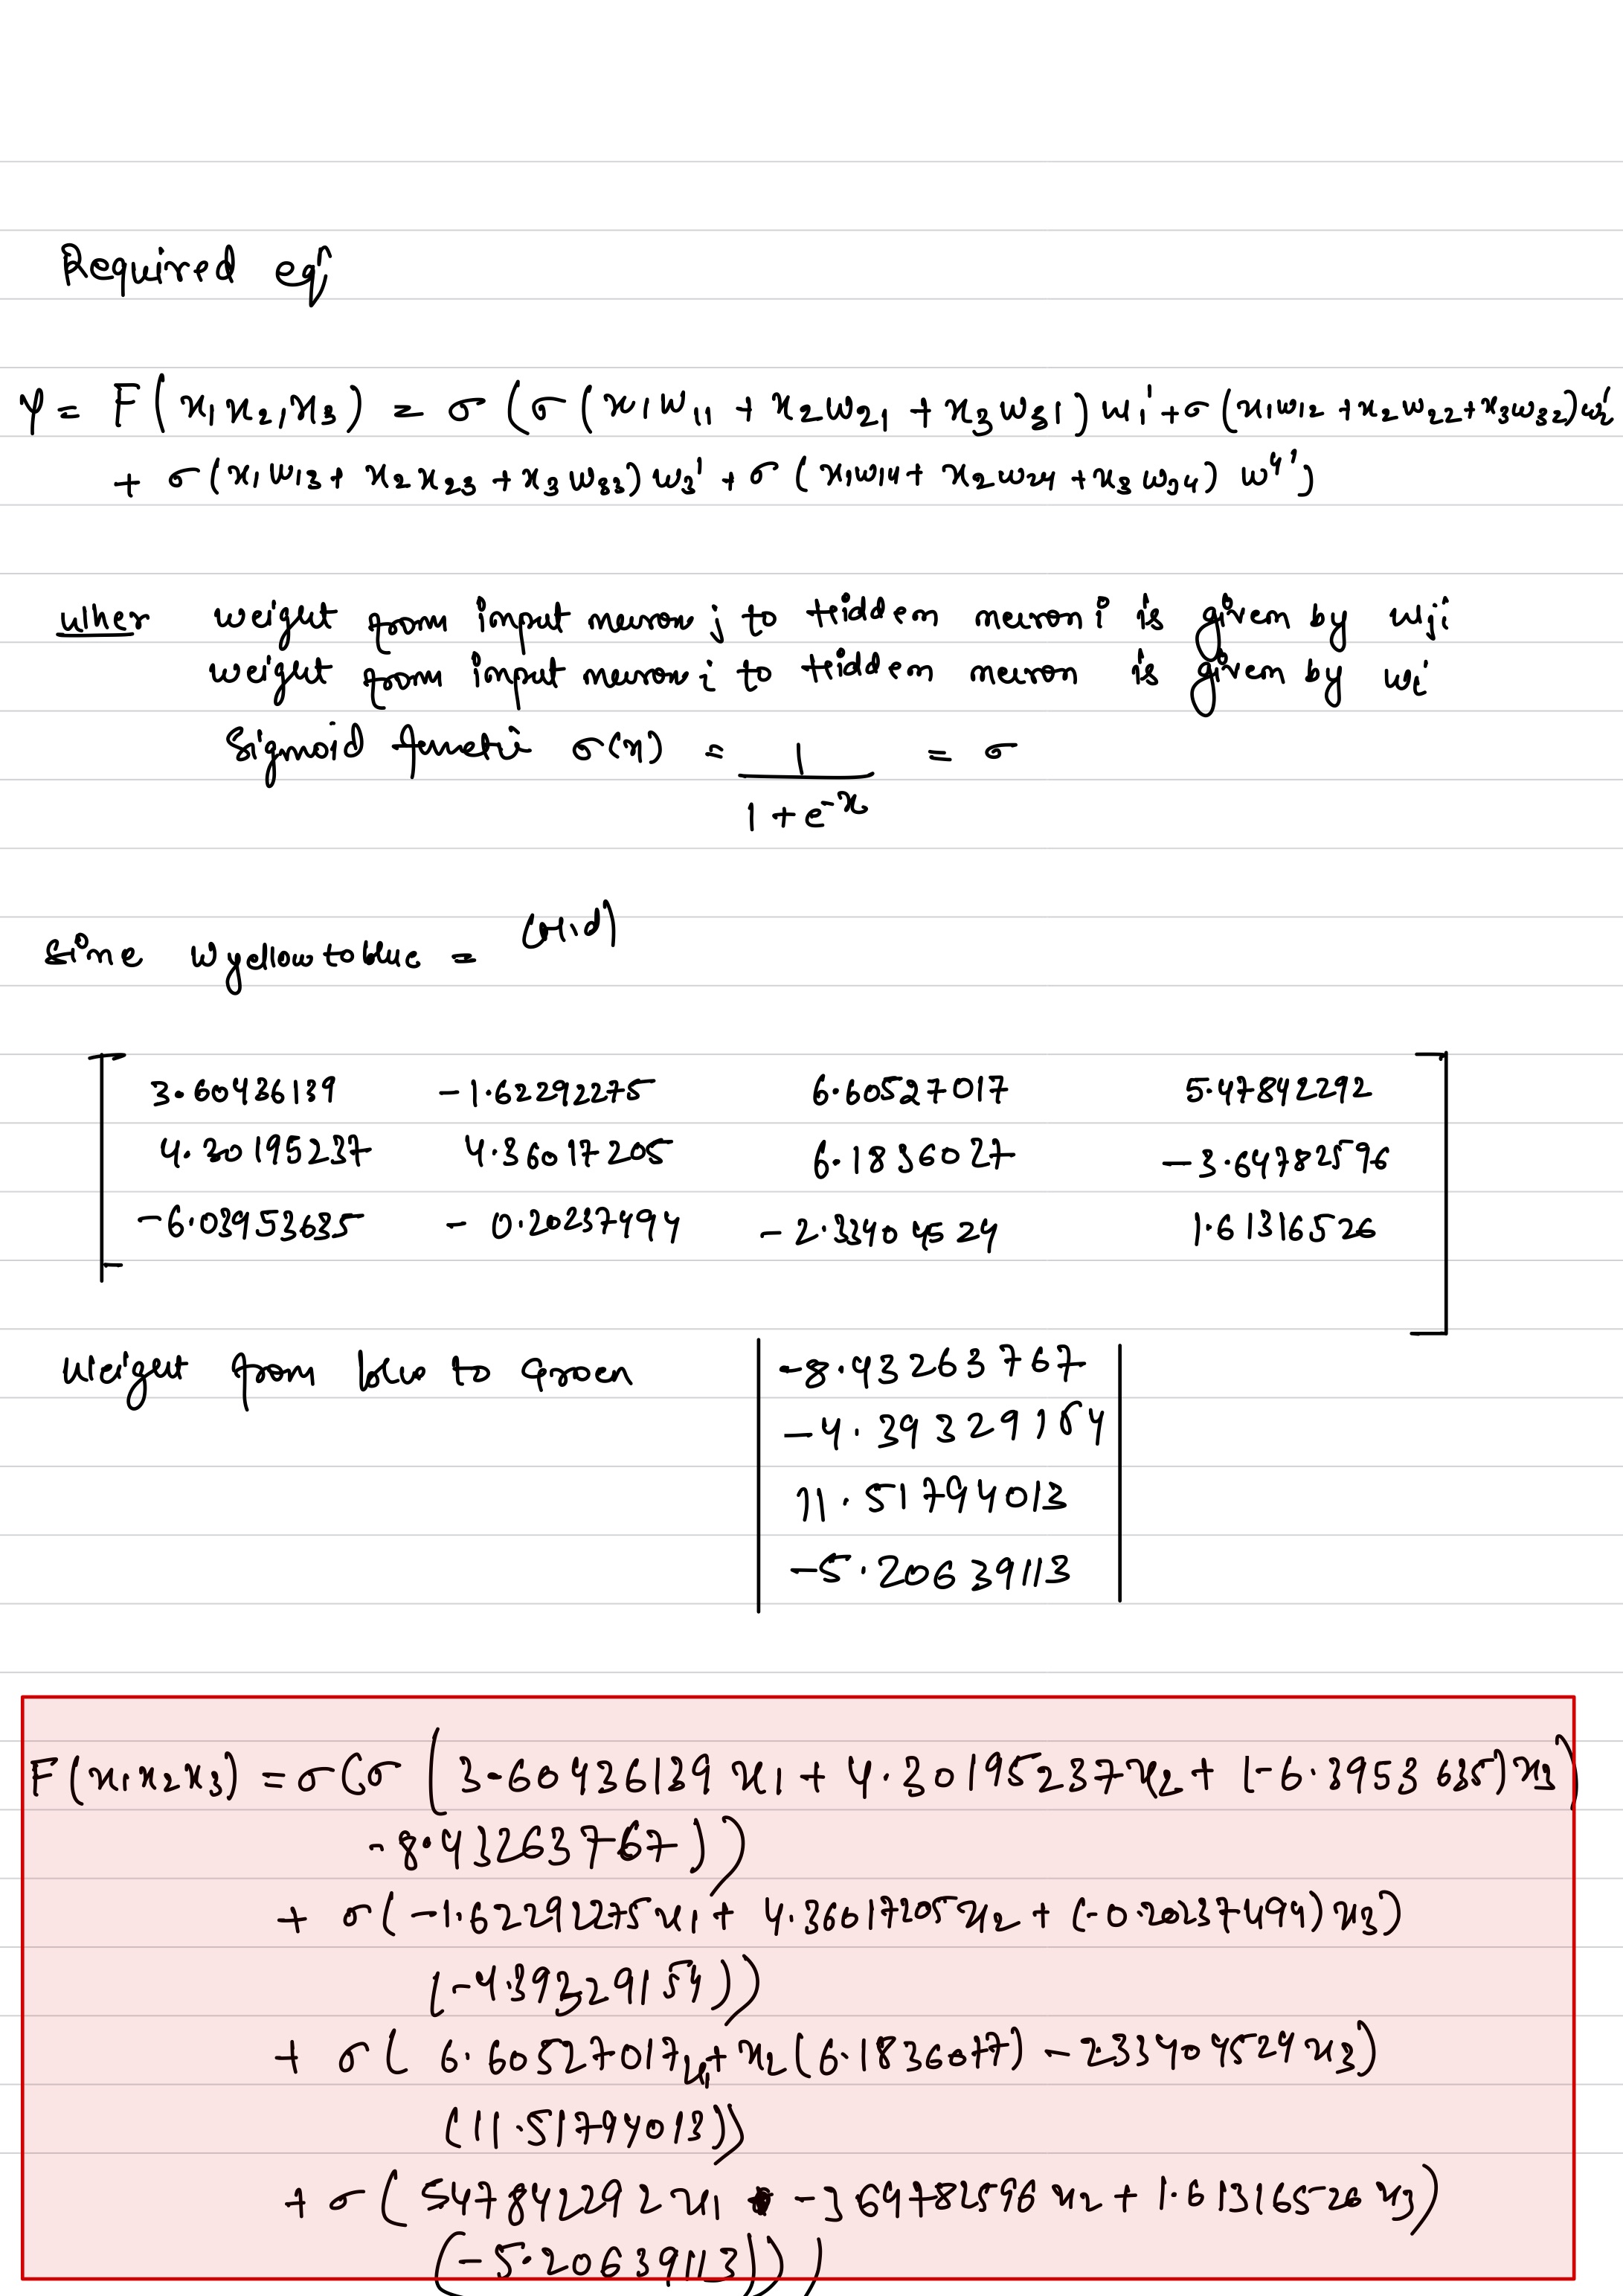 Required eqn
Y = F(x1 x2, x3) = σ(σ(x1w11 + x2w21 + x3w31)w1' + σ(x1w12 + x2w22 + x3w32)w2'
+ σ(x1w13 + x2x23 + x3w33)w3' + σ(x1w14 + x2w24 + x3w34) w4')
wher weight from input neuron j to Hidden neuron i is given by wji
weight from input neuron i to Hidden neuron is given by wi'
Sigmoid σ(x) = 1 / (1 + e^-x) = σ
Wyellow to blue =
3.60436139 -1.62292275 6.60527017 5.47842292
4.30195237 4.36017205 6.1836027 -3.64782596
-6.03953635 -0.20237494 -2.33404524 1.61316526
Weight from blue to Green
-8.43263767
-4.39329154
11.51794013
-5.20639113
F(x1x2x3) = σ(σ(3.60436139 x1 + 4.30195237x2 + (-6.3953635)x3)
-8.43263767))
+ σ(-1.62292275x1 + 4.36017205x2 + (-0.20237494)x3)
(-4.39329154))
+ σ( 6.60527017x1 + x2(6.1836077) - 2.33404524x3)
(11.51794013))
+ σ( 547842292x1 -364782596x2 + 1.61316526x3)
(-5.20639113)))